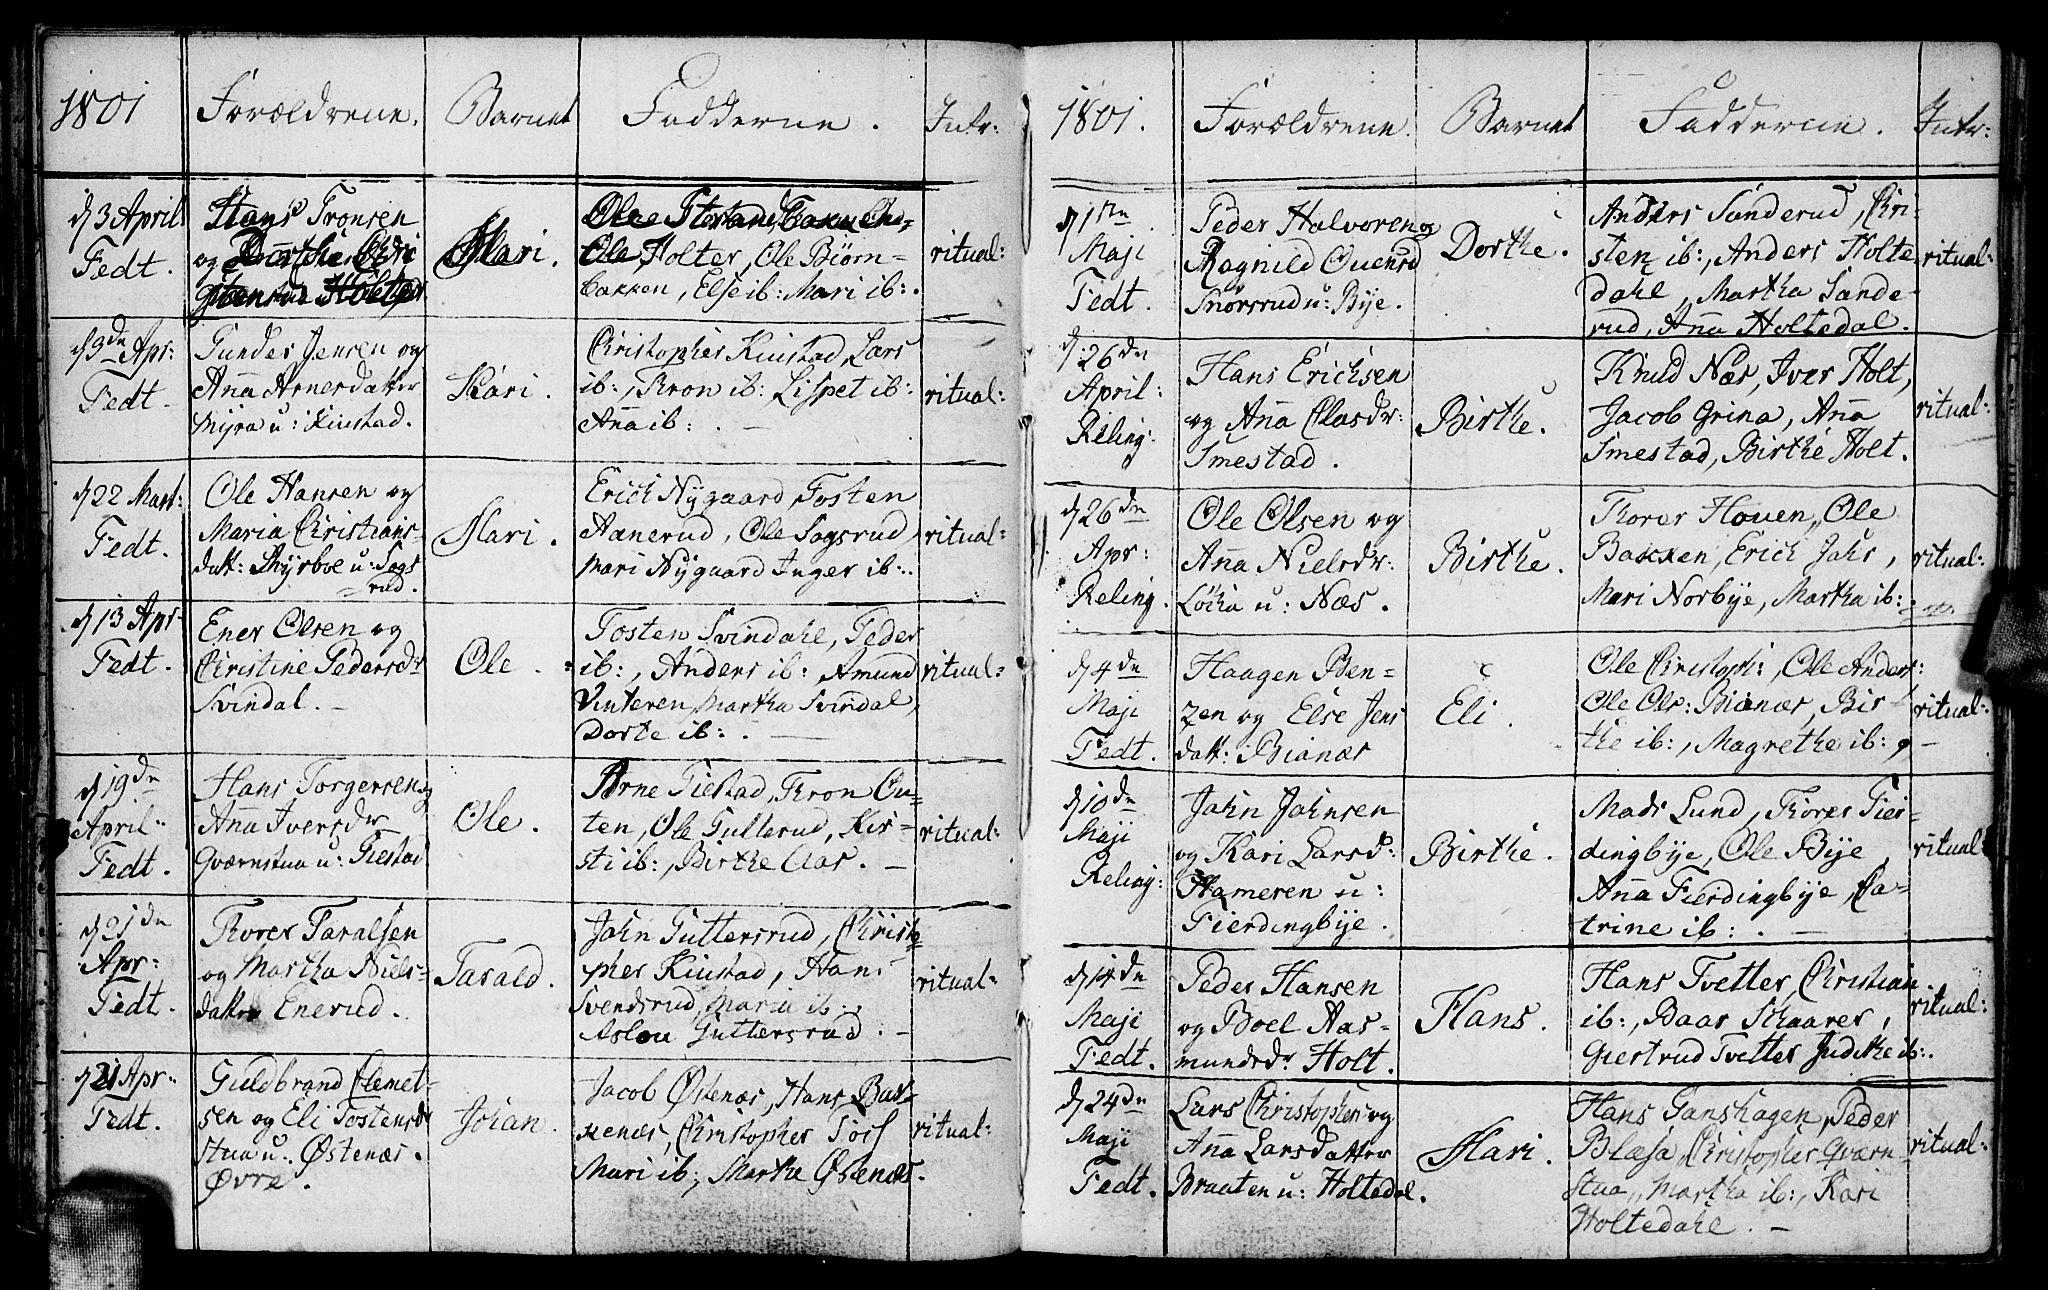 1801
Forældrene.
Barnet
Fadderne.
Intr:
d 3 April
Fedt.
Hans Tronsen
og
Holter
Mari.
Ole
Ole Holter, Ole Biörn-
bakken, Else ib: Mari ib:.
ritual:
d 9de Apr:
Fedt.
Gunder Jensen og
Anna Arnesdatter
Myra u: Kiustad.
Kari.
Christopher Kiustad, Lars
ib:, Tron ib: Lispet ib:
Anna ib: . —
ritual:
d 22 Mart:
Fedt.
Ole Hansen og
Maria Christians-
datt: Myrboe u: Sogs
rud.
Mari.
Erich Nygaard, Tosten
Hanerud, Ole Sogsrud
Mari Nygaard Inger ib:.
ritual:
d 13 Apr.
Fedt.
Ener Olsen og
Christine Pedersdr
Svindal. —
Ole.
Tosten Svindahl, Peder
ib:, Anders ib: Amund
Vinteren, Martha Svindal,
Dorte ib: . —
ritual:
d 19de
April:
Fedt.
Hans Torgersen og
Anna Iversdr
Qværnstua u: Tiestad
Ole.
Arne Tiestad, Tron Ou-
ten, Ole Gullerud, Kir-
sti ib:, Birthe Aas. —
ritual:
d 21de
Apr:
Fedt.
Thorer Taralsen
og Martha Niels-
datter Enerud.
Tarald.
John Guttersrud, Christo-
pher Kiustad, Hans
Svendsrud, Maria ib:,
Aslou Guttersrud. —
ritual:
d 21 Apr:
Fedt.
Guldbrand Clemet-
sen og Eli Tostensdr
stua u: Østenæs.
Øvre.
Johan.
Jacob Østenæs, Hans Bak-
kenæs, Christopher
Mari ib:, Marthe Østenæs.
ritual:
1801.
Forældrene.
Barnet
Fadderne.
Intr:
d 1ste
Maji
Fedt.
Peder Halvorsen og
Ragnild Ouensd
Snorsrud u: Bye.
Dorthe.
Anders Sanderud, Chri-
sten ib:, Anders Holte
dahl, Martha Sande-
rud, Anna Holtedal.
ritual:
d. 26de
April:
Reling.
Hans Erichsen
og Anna Olasdr:
Smestad.
Birthe.
Knud Næs, Iver Holt,
Jacob Grina, Anna
Smestad, Birthe Holt.
ritual:
d 26de
Apr:
Reling.
Ole Olsen og
Anna Nielsdr:
Lökia u: Næs.
Birthe.
Thorer Houen, Ole
Bakken, Erich Jahr,
Mari Norbye, Martha ib:
ritual:
d 4de
Maji
Fedt.
Haagen Ben-
zen og Else Jens
datt: Bianæs
Eli.
Ole Christoph:, Ole Anders:
Ole Ols: Bianæs, Bir-
the ib:, Magrethe ib: —
ritual:
d 10de
Maji
Reling:
John Johnsen
og Kari Larsd:
Hameren u:
Fierdingbye.
Birthe.
Mads Lund, Thorer Fier-
dingbye, Ole Bye
Anna Fierdingbye, Ca-
trine ib: . —
ritual:
d 14de
Maji
Fedt.
Peder Hansen
og Boel Aas-
mundsdr Holt.
Hans.
Hans Tvetter, Christian
ib:, Baar Schaarer,
Giertrud Tvetter Judithe ib:.
ritual:
d 24de
Maji
Fedt.
Lars Christophers og
Anna Larsdatter
Braaten u: Holtedal.
Mari.
Hans Ganshagen, Peder
Blæsa, Christopher Qværn-
stua, Martha ib:, Kari
Holtedahl. —
ritual: